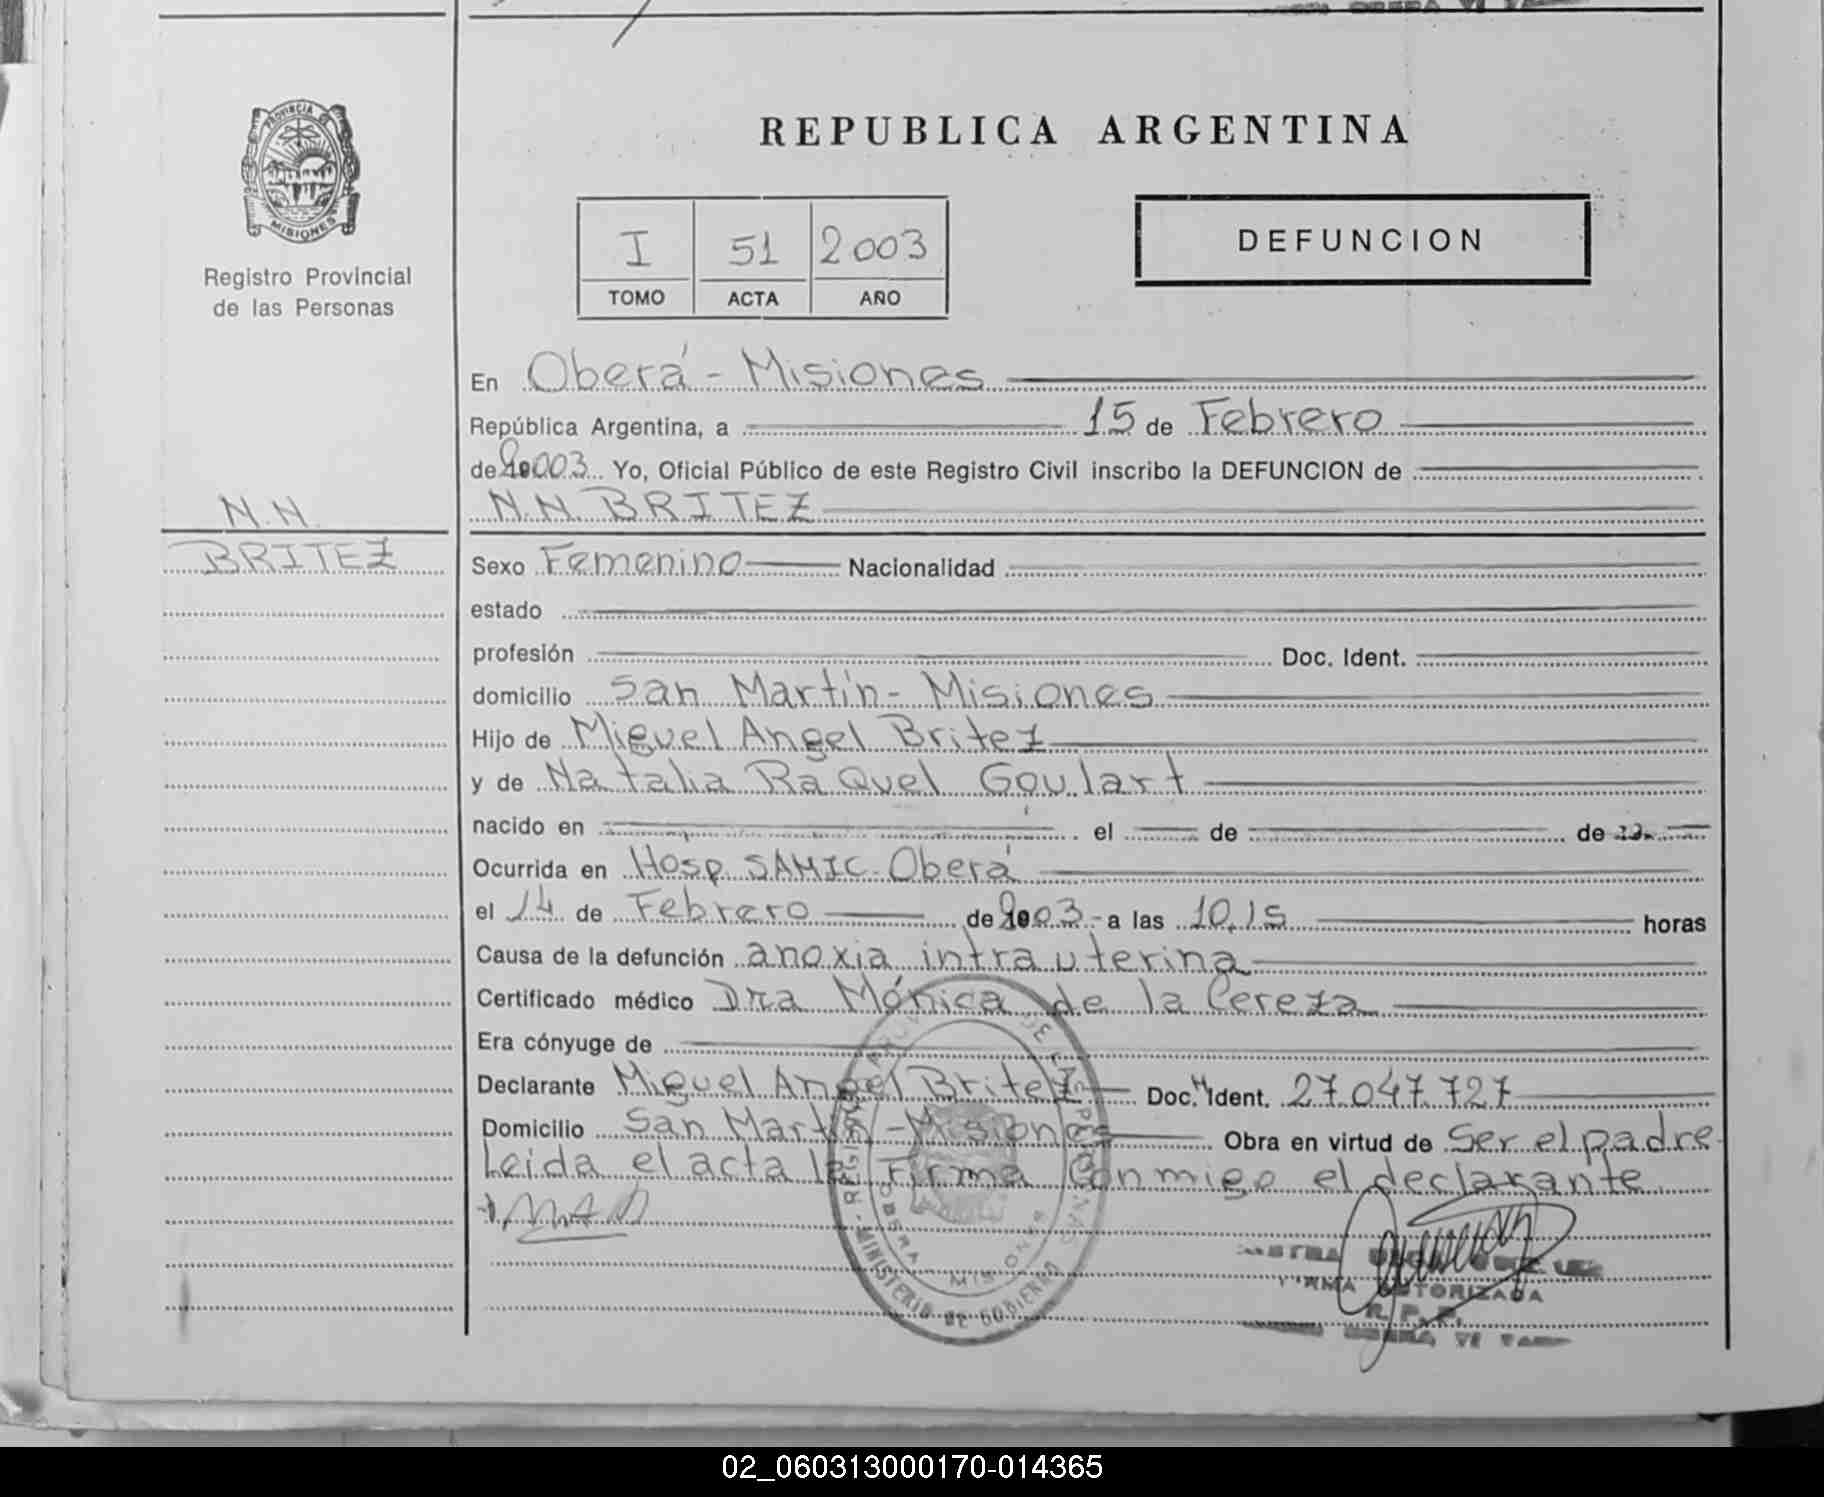 PROVINCIA DE
MISIONES
Registro Provincial
de las Personas
REPUBLICA ARGENTINA
I 51 2003
TOMO ACTA AÑO
DEFUNCION
En Oberá - Misiones
República Argentina, a 15 de Febrero
de 2003 Yo, Oficial Público de este Registro Civil inscribo la DEFUNCION de
N.N. N.N. BRITEZ
BRITEZ Sexo Femenino Nacionalidad
estado
profesión Doc. Ident.
domicilio San Martín - Misiones
Hijo de Miguel Angel Britez
y de Natalia RaQuel Goulart
nacido en el de de 19
Ocurrida en Hosp. SAMIC - Oberá
el 14 de Febrero de 2003 - a las 10,15 horas
Causa de la defunción anoxia intrauterina
Certificado médico Dra Mónica de la Cereza
Era cónyuge de
Declarante Miguel Angel Britez Doc. Ident. 27.047.727
Domicilio San Martín - Misiones Obra en virtud de Ser el padre.
Leida el acta la Firma Conmigo el declarante
MINISTERIO DE GOBIERNO
OBERA - MISIONES
FIRMA AUTORIZADA
R. P. P.
02_060313000170-014365